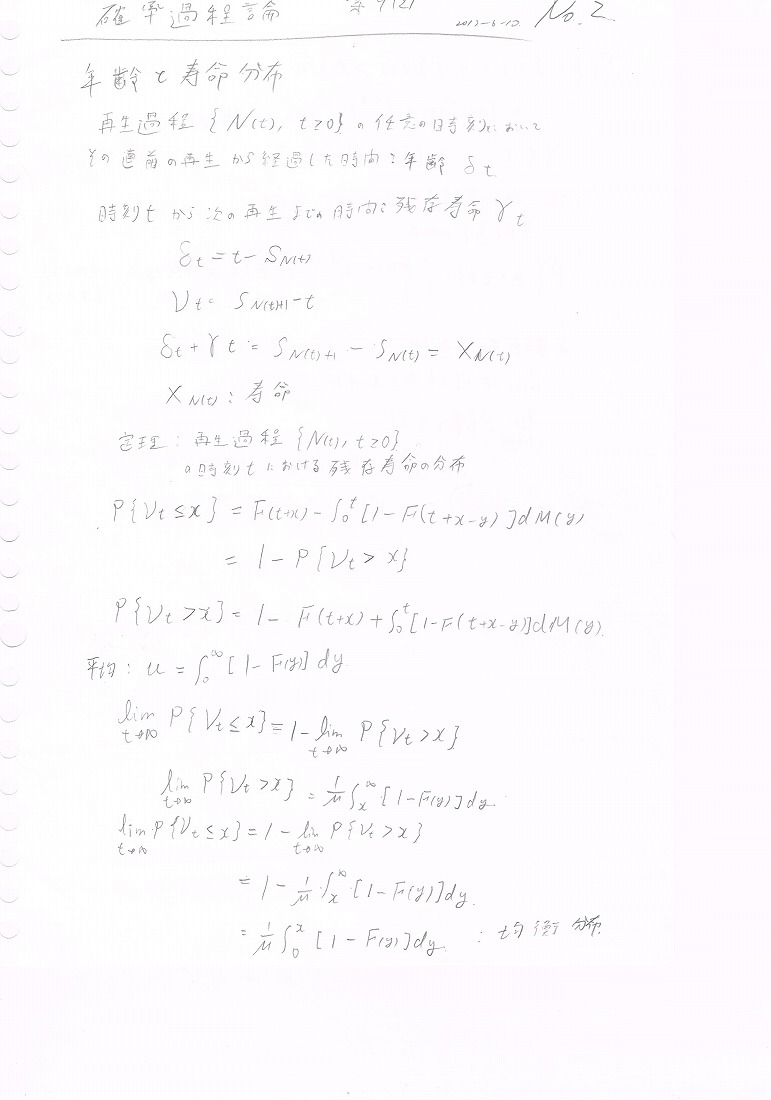 確率過程論 No.2
年齢と寿命分布
再生過程 {N(t), t≥0} の任意の時刻において
その直前の再生から経過した時間:年齢 δt
時刻tから次の再生までの時間:残存寿命 γt
δt = t − S_N(t)
γt = S_N(t)+1 − t
δt + γt = S_N(t)+1 − S_N(t) = X_N(t)
X_N(t) : 寿命
定理: 再生過程 {N(t), t≥0}
の時刻tにおける残存寿命の分布
P{γt ≤ x} = F(t+x) − ∫₀ᵗ [1−F(t+x−y)]dM(y)
= 1 − P{γt > x}
P{γt > x} = 1 − F(t+x) + ∫₀ᵗ [1−F(t+x−y)]dM(y)
平均: μ = ∫₀^∞ [1−F(y)] dy
lim t→∞ P{γt ≤ x} = 1 − lim t→∞ P{γt > x}
lim t→∞ P{γt > x} = 1/μ ∫ₓ^∞ [1−F(y)]dy
lim t→∞ P{γt ≤ x} = 1 − lim t→∞ P{γt > x}
= 1 − 1/μ ∫ₓ^∞ [1−F(y)]dy
= 1/μ ∫₀ˣ [1−F(y)]dy : 均衡分布